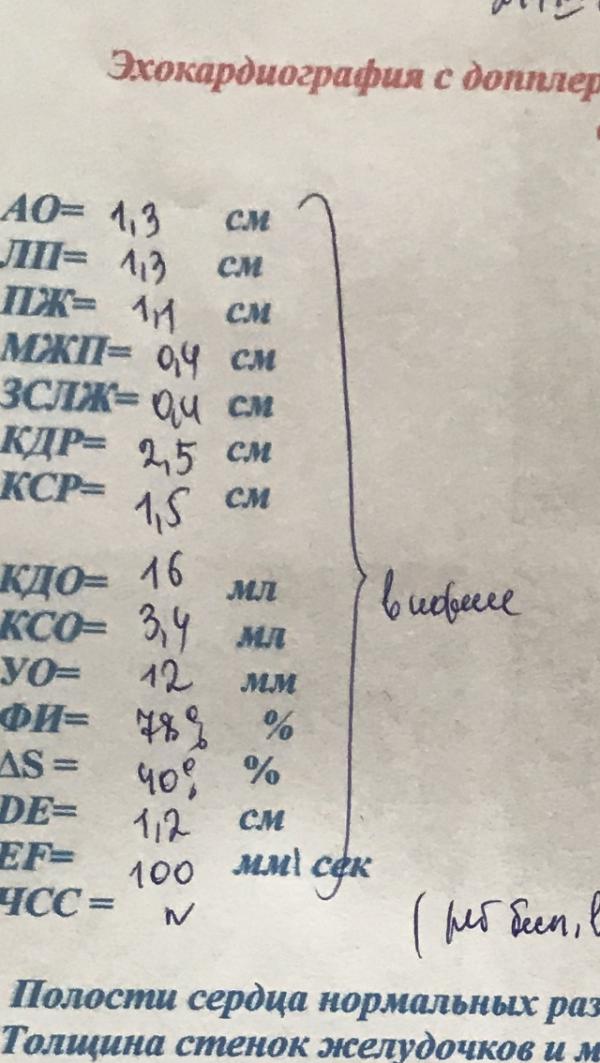 Эхокардиография с допплер
АО= 1,3 см
ЛП= 1,3 см
ПЖ= 1,1 см
МЖП= 0,4 см
ЗСЛЖ= 0,4 см
КДР= 2,5 см
КСР= 1,5 см
КДО= 16 мл
КСО= 3,4 мл
в норме
УО= 12 мм
ФИ= 78% %
ΔS = 40% %
DE= 1,2 см
EF= 100 мм\ сек
ЧСС = N
Полости сердца нормальных раз
Толщина стенок желудочков и м